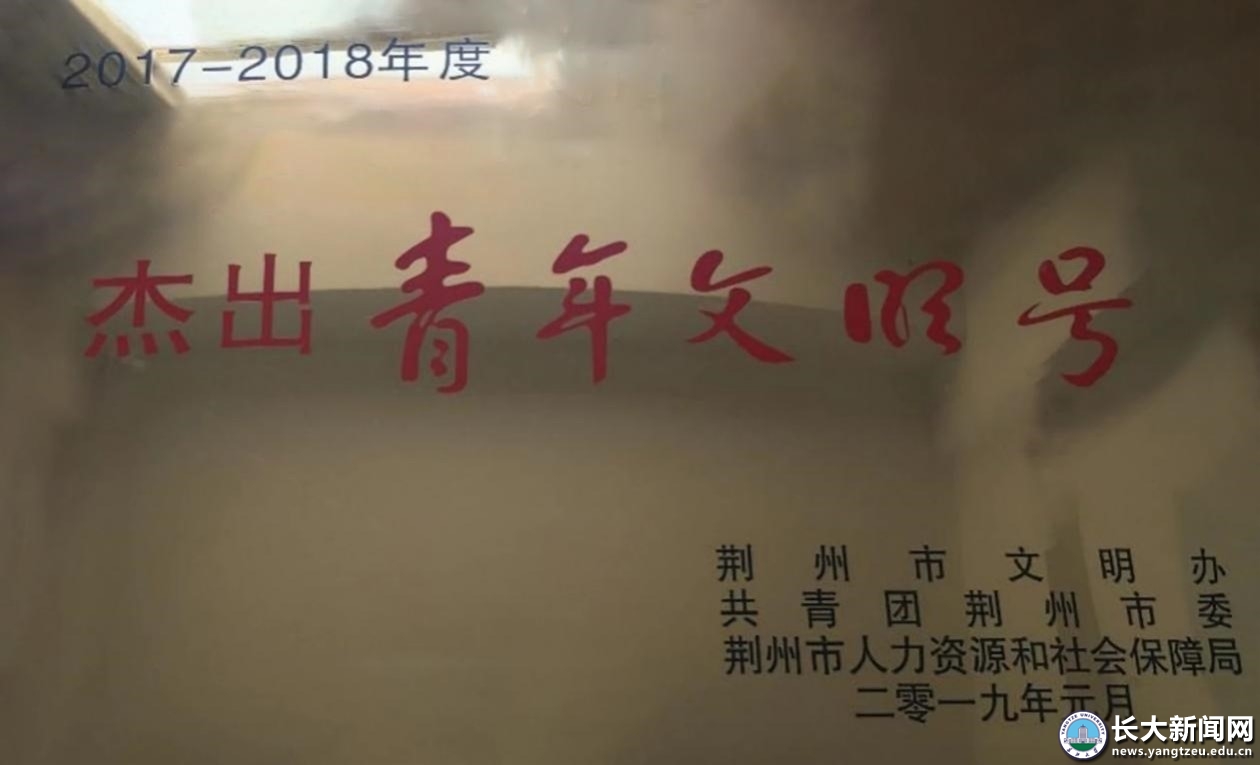 2017-2018年度
杰出青年文明号
荆州市文明办
共青团荆州市委
荆州市人力资源和社会保障局
二零一九年元月
长大新闻网
news.yangtzeu.edu.cn